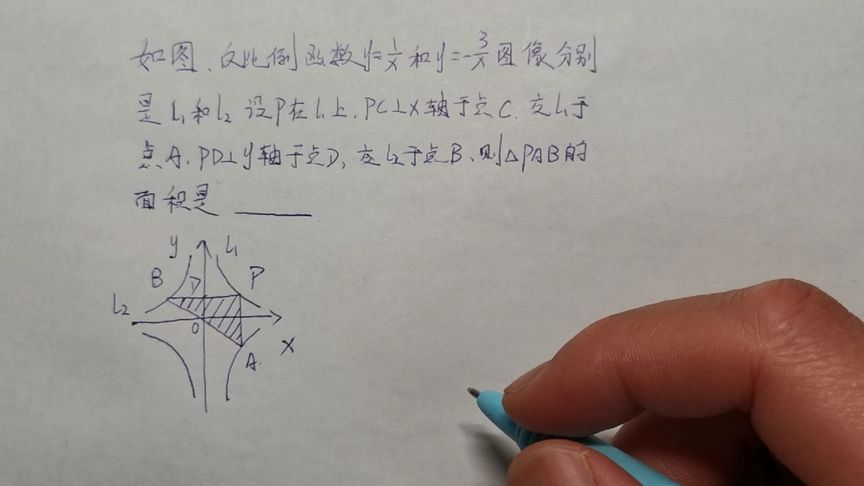 如图、反比例函数y=1/x和y=-3/x图像分别
是l₁和l₂ 设P在l₁上,PC⊥X轴于点C.交l₁于
点A.PD⊥y轴于点D,交l₂于点B、则△PAB的
面积是 ______
y l₁
B D P
l₂
O X
A